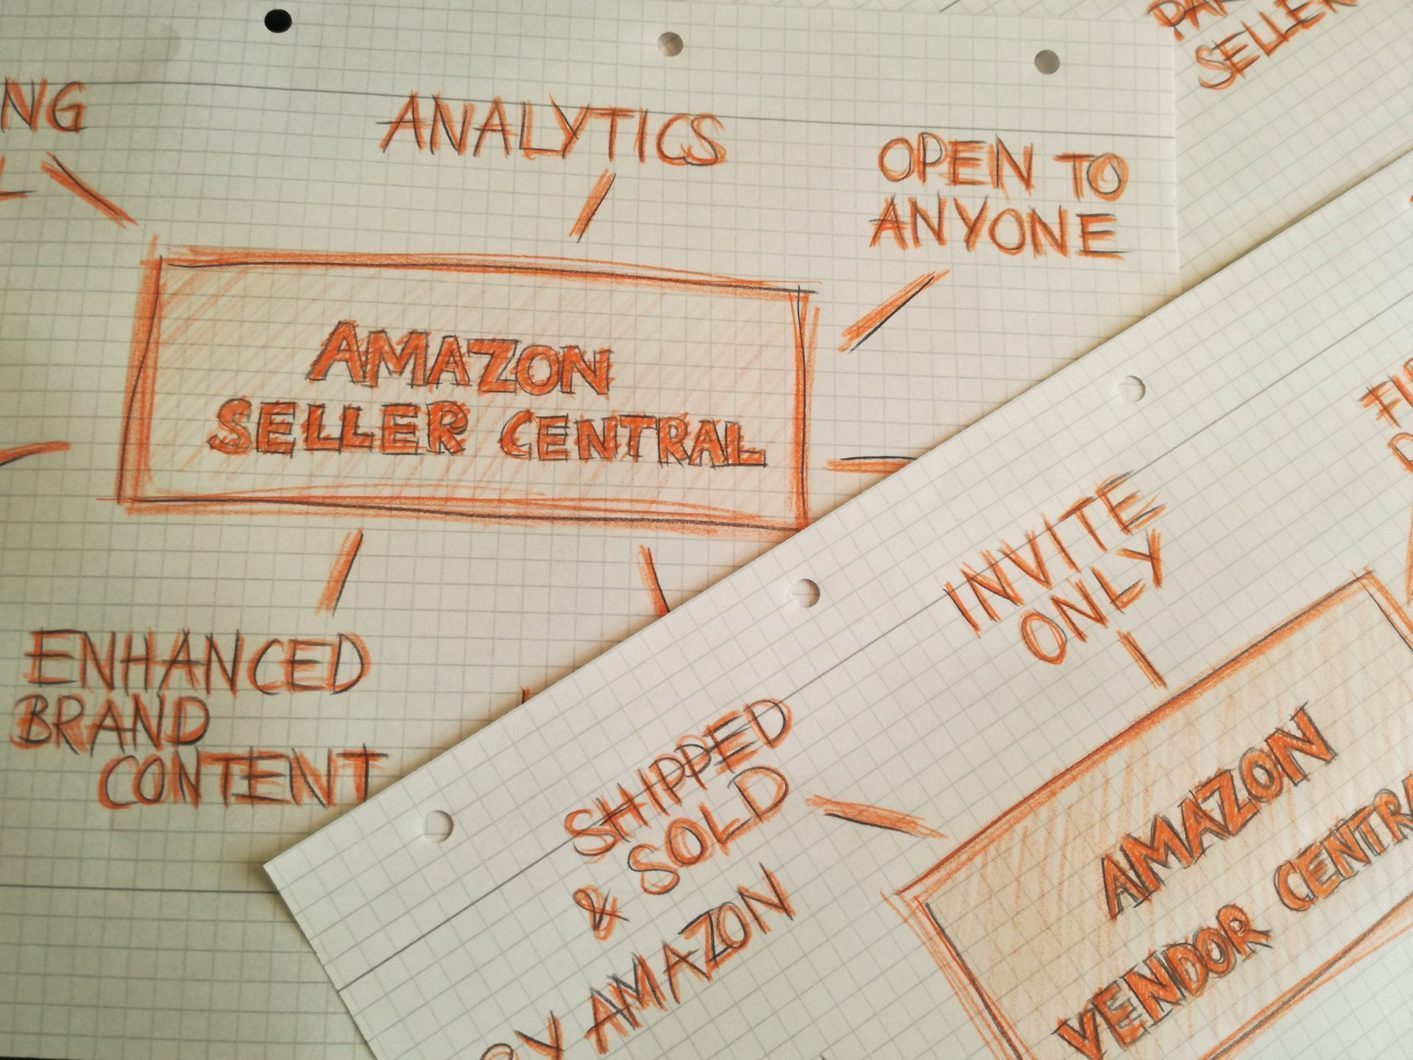 ANALYTICS
OPEN TO
ANYONE
AMAZON
SELLER CENTRAL
ENHANCED
BRAND
CONTENT
INVITE
ONLY
SHIPPED
& SOLD
BY AMAZON
AMAZON
VENDOR CENTRAL